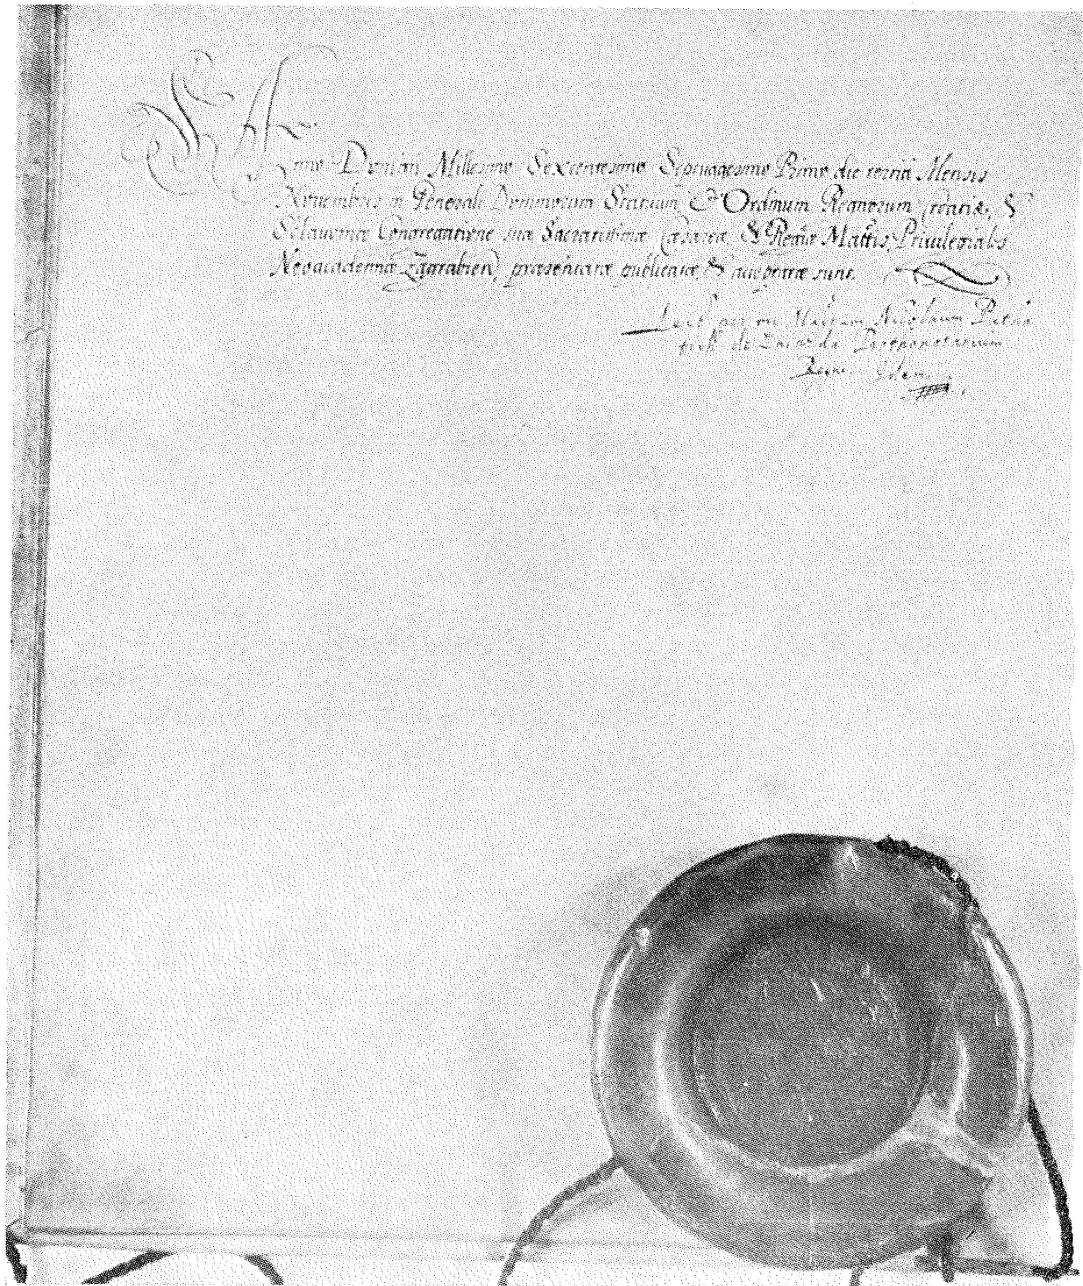 Anno Domini Millesimo Sexcentesimo Septuagesimo Primo die tertia Mensis
Novembris in Generali Dominorum Statuum & Ordinum Regnorum Croatiæ, &
Sclavoniæ Congregatione suæ Sacratissimæ Cæsareæ & Regiæ Mattis Privilegiales
Neoacademiæ Zagrabien, præsentatæ publicatæ & acceptatæ sunt.
Lect per me Nicolaum
de Protonotarium
Regni